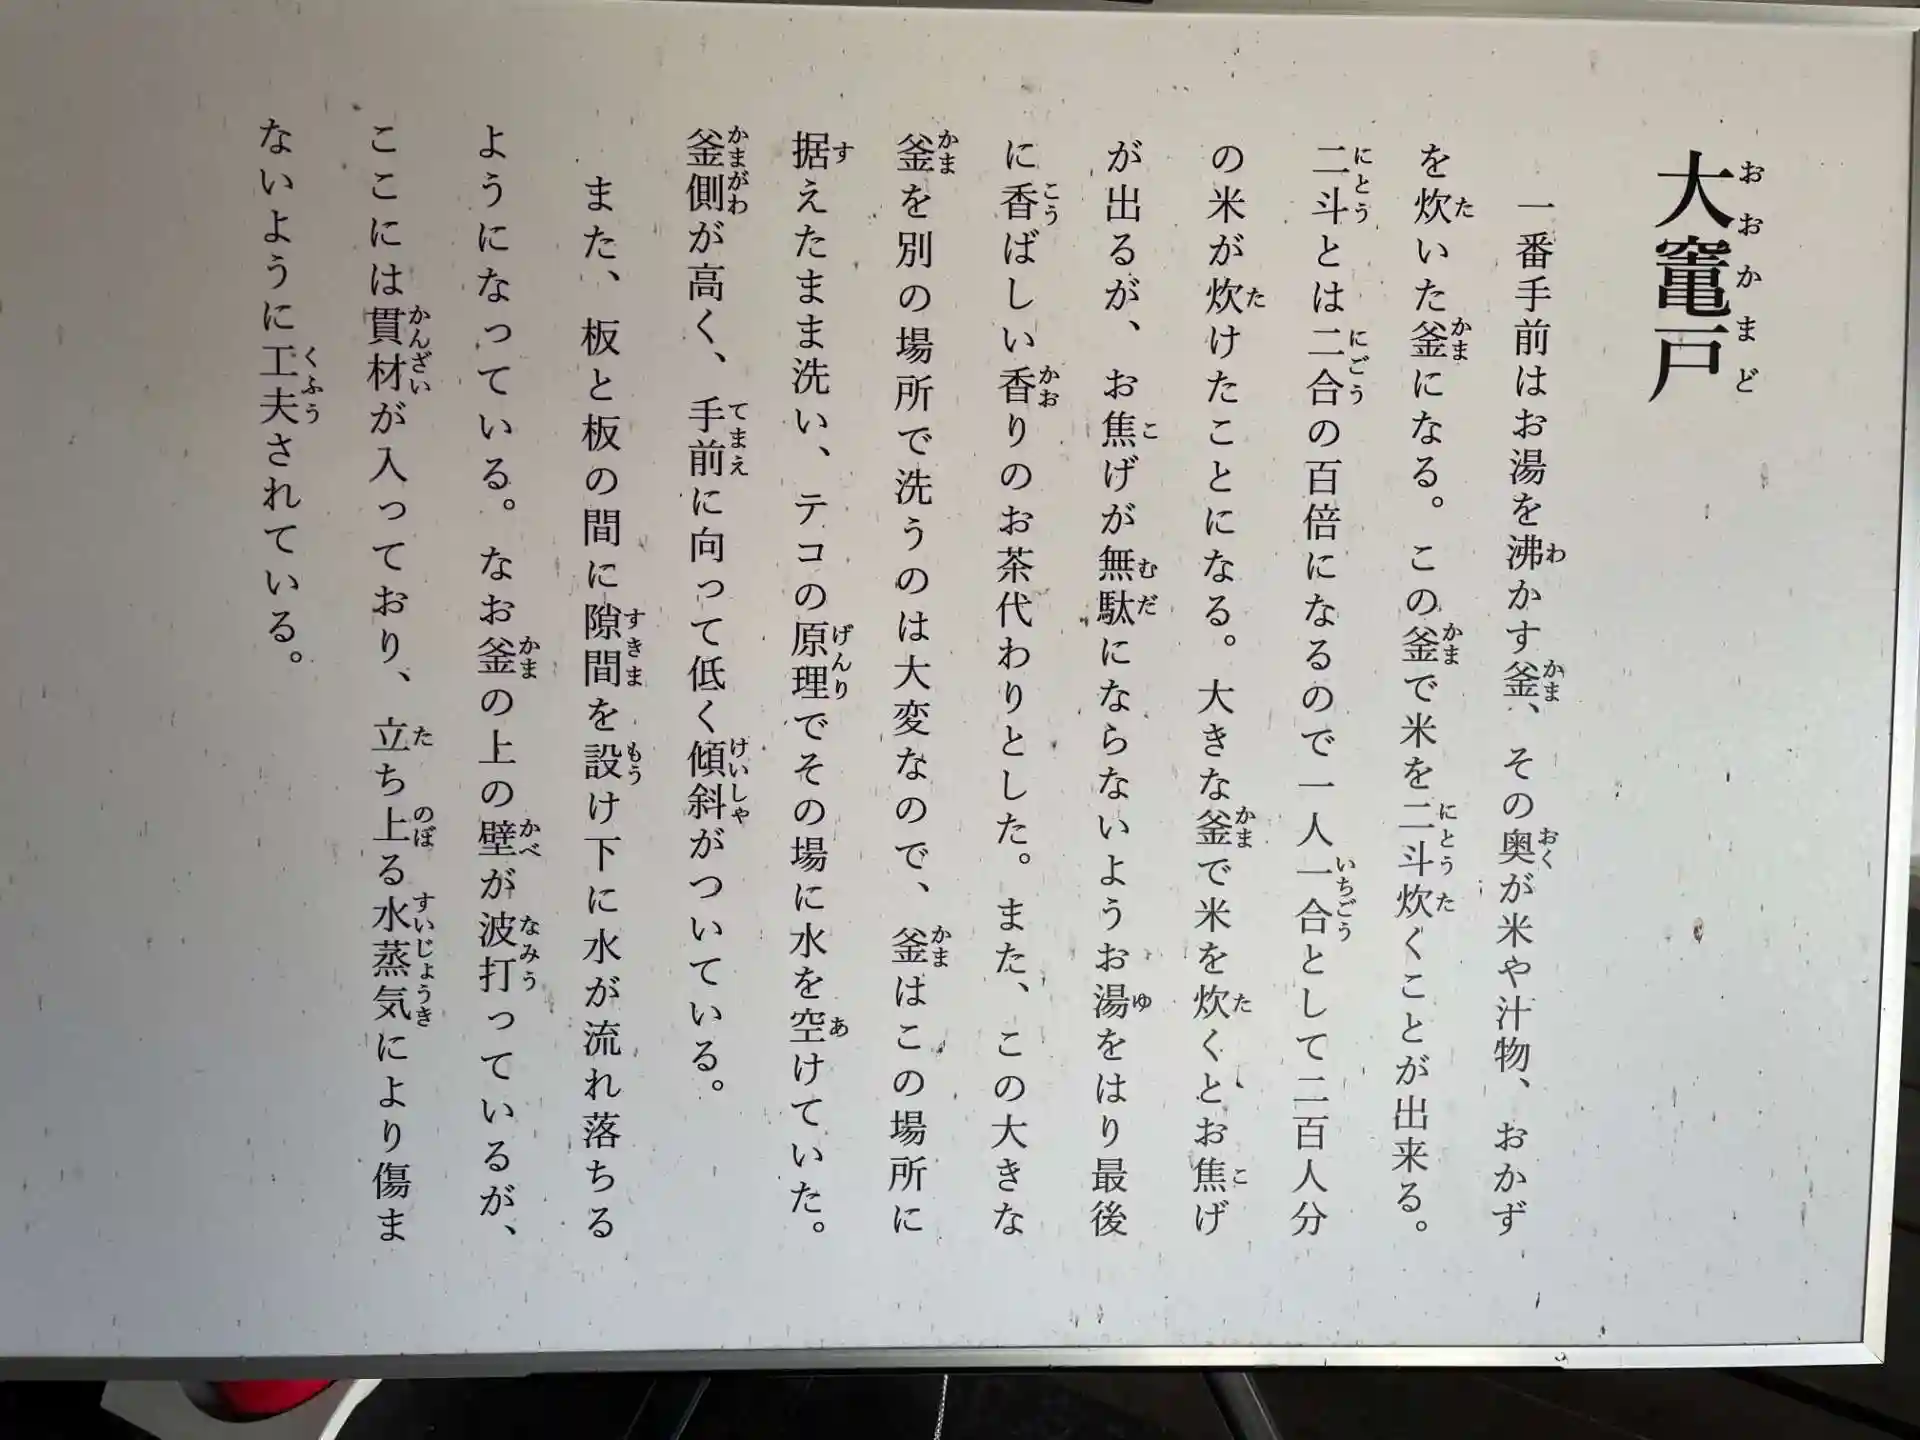 大竈戸
一番手前はお湯を沸かす釜、その奥が米や汁物、おかず
を炊いた釜になる。この釜で米を二斗炊くことが出来る。
二斗とは二合の百倍になるので一人一合として二百人分
の米が炊けたことになる。大きな釜で米を炊くとお焦げ
が出るが、お焦げが無駄にならないようお湯をはり最後
に香ばしい香りのお茶代わりとした。また、この大きな
釜を別の場所で洗うのは大変なので、釜はこの場所に
据えたまま洗い、テコの原理でその場に水を空けていた。
釜側が高く、手前に向って低く傾斜がついている。
また、板と板の間に隙間を設け下に水が流れ落ちる
ようになっている。なお釜の上の壁が波打っているが、
ここには貫材が入っており、立ち上る水蒸気により傷ま
ないように工夫されている。